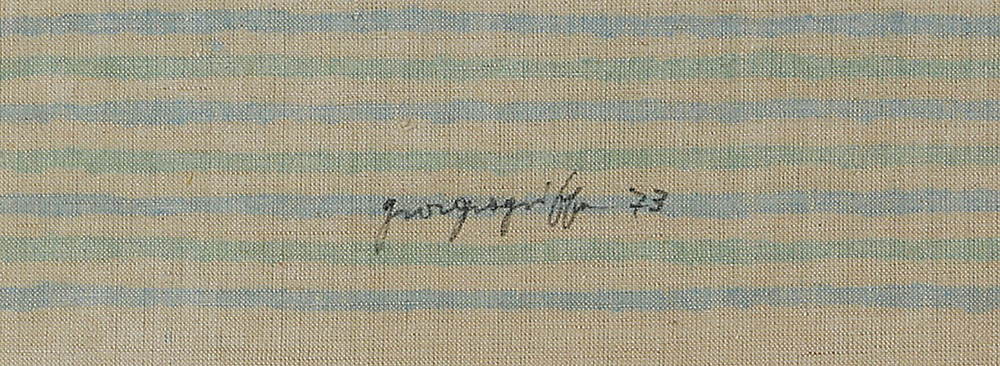 giorgiogriffa 73